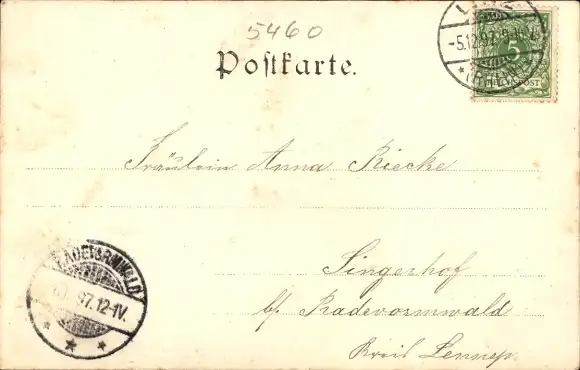 5460
-5.12.97.
5
Postkarte.
Fräulein Anna Riecke
Singerhof
b/ Radevormwald
Kreis Lennep.
RADEVORMWALD
97.12-1V.